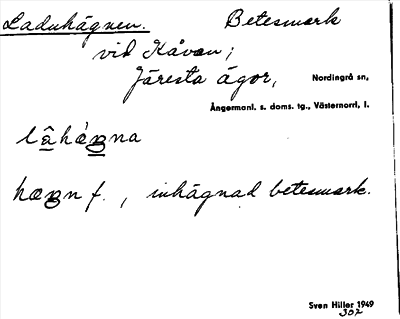 Laduhägnen. Betesmark
vid Kåvan;
Järesta ägor, Nordingrå sn,
Ångermanl. s. doms. tg., Västernorrl. l.
hägn f., inhägnad betesmark.
Sven Hiller 1949
302